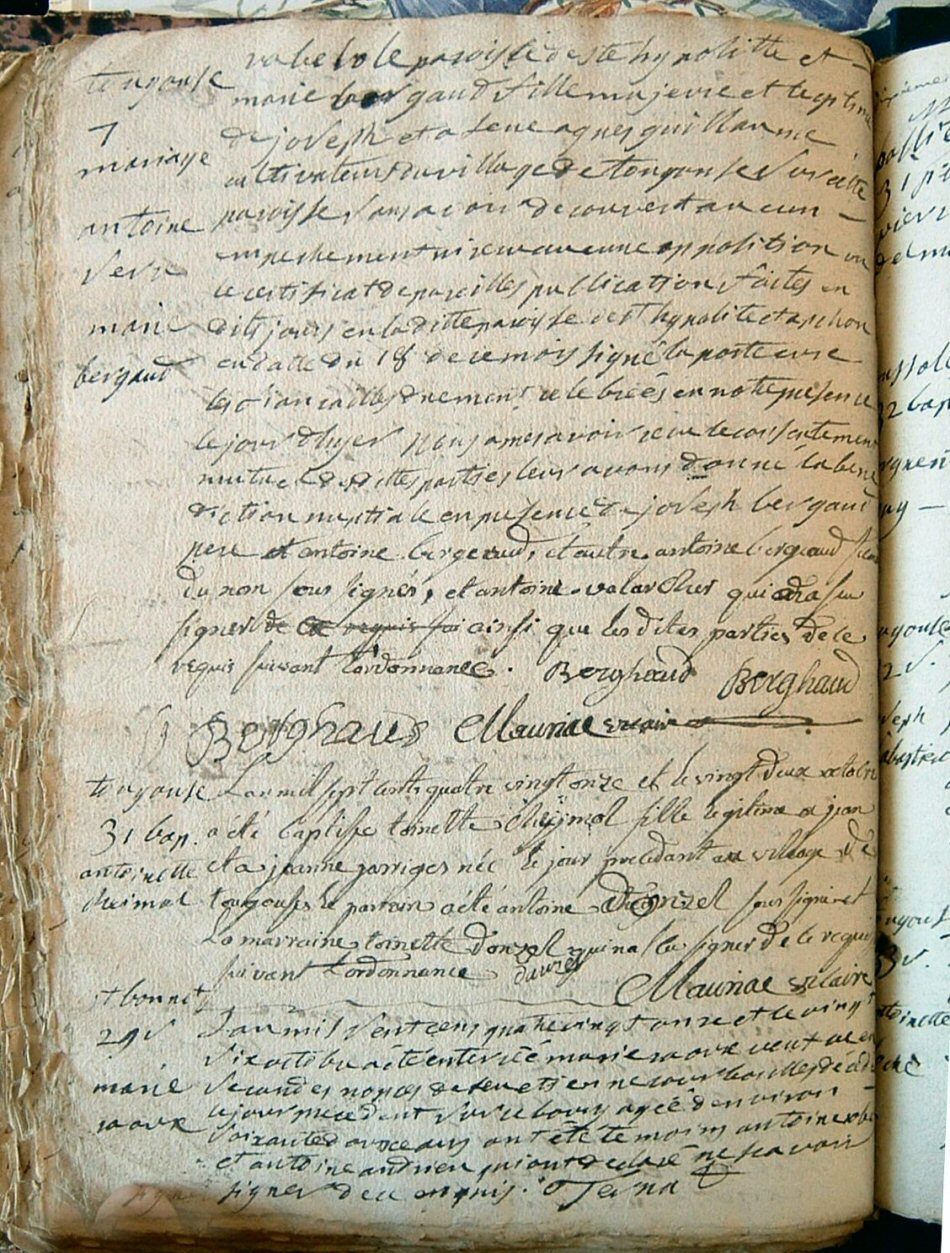 tougouse
7
mariage
antoine
serre
marie
bergaud
paroisse de st hypolitte et
marie bergaud fille majeure et legitime
de joseph et a feue agnes guillaume
cultivateurs du village de tougouse sur cette
paroisse sans avoir decouvert aucun
empechement ni recu aucune opposition vu
le certificat de pareilles publications faites en
dits jours en la ditte paroisse de st hypolite et apchon
en datte du 18 de ce mois signé laporte cure
les fiancailles duement celebrées en notre presence
le jour d'hyer nous apres avoir recu le consentement
mutuel des dittes parties leur avons donné la bene
diction nuptiale en presence de joseph bergaud
pere et antoine bergeaud, et autre antoine bergeaud
du nom sous signés, et antoine valarcher qui n'a su
signer de ce requis ainsi que les dites parties de ce
requis suivant l'ordonnance. Berghaud Berghaud
Berghaud Mauriac vicaire
tougouse
31 bap.
antoinette
cheimol
L'an mil sept cents quatre vingt onze et le vingt deux octobre
a été baptisée toinette cheymol fille legitime a jean
et a jeanne garriges née le jour precedant au village de
tougouse le parrain a été antoine dauzel sous signé et
La marraine toinette donzel qui na su signer de ce requis
suivant l'ordonnance dauzel
Mauriac vicaire
st bonnet
29 S
marie
roux
L'an mil sept cens quatre vingt onze et le vingt
six octobre a été enterrée marie roux veuve en
secondes nopces de feu etienne decedée
le jour precedent sur ce bourg agée denviron
soixante douze ans ont été temoins antoine
et antoine andrieu qui ont declaré ne scavoir
signer de ce requis. Serna